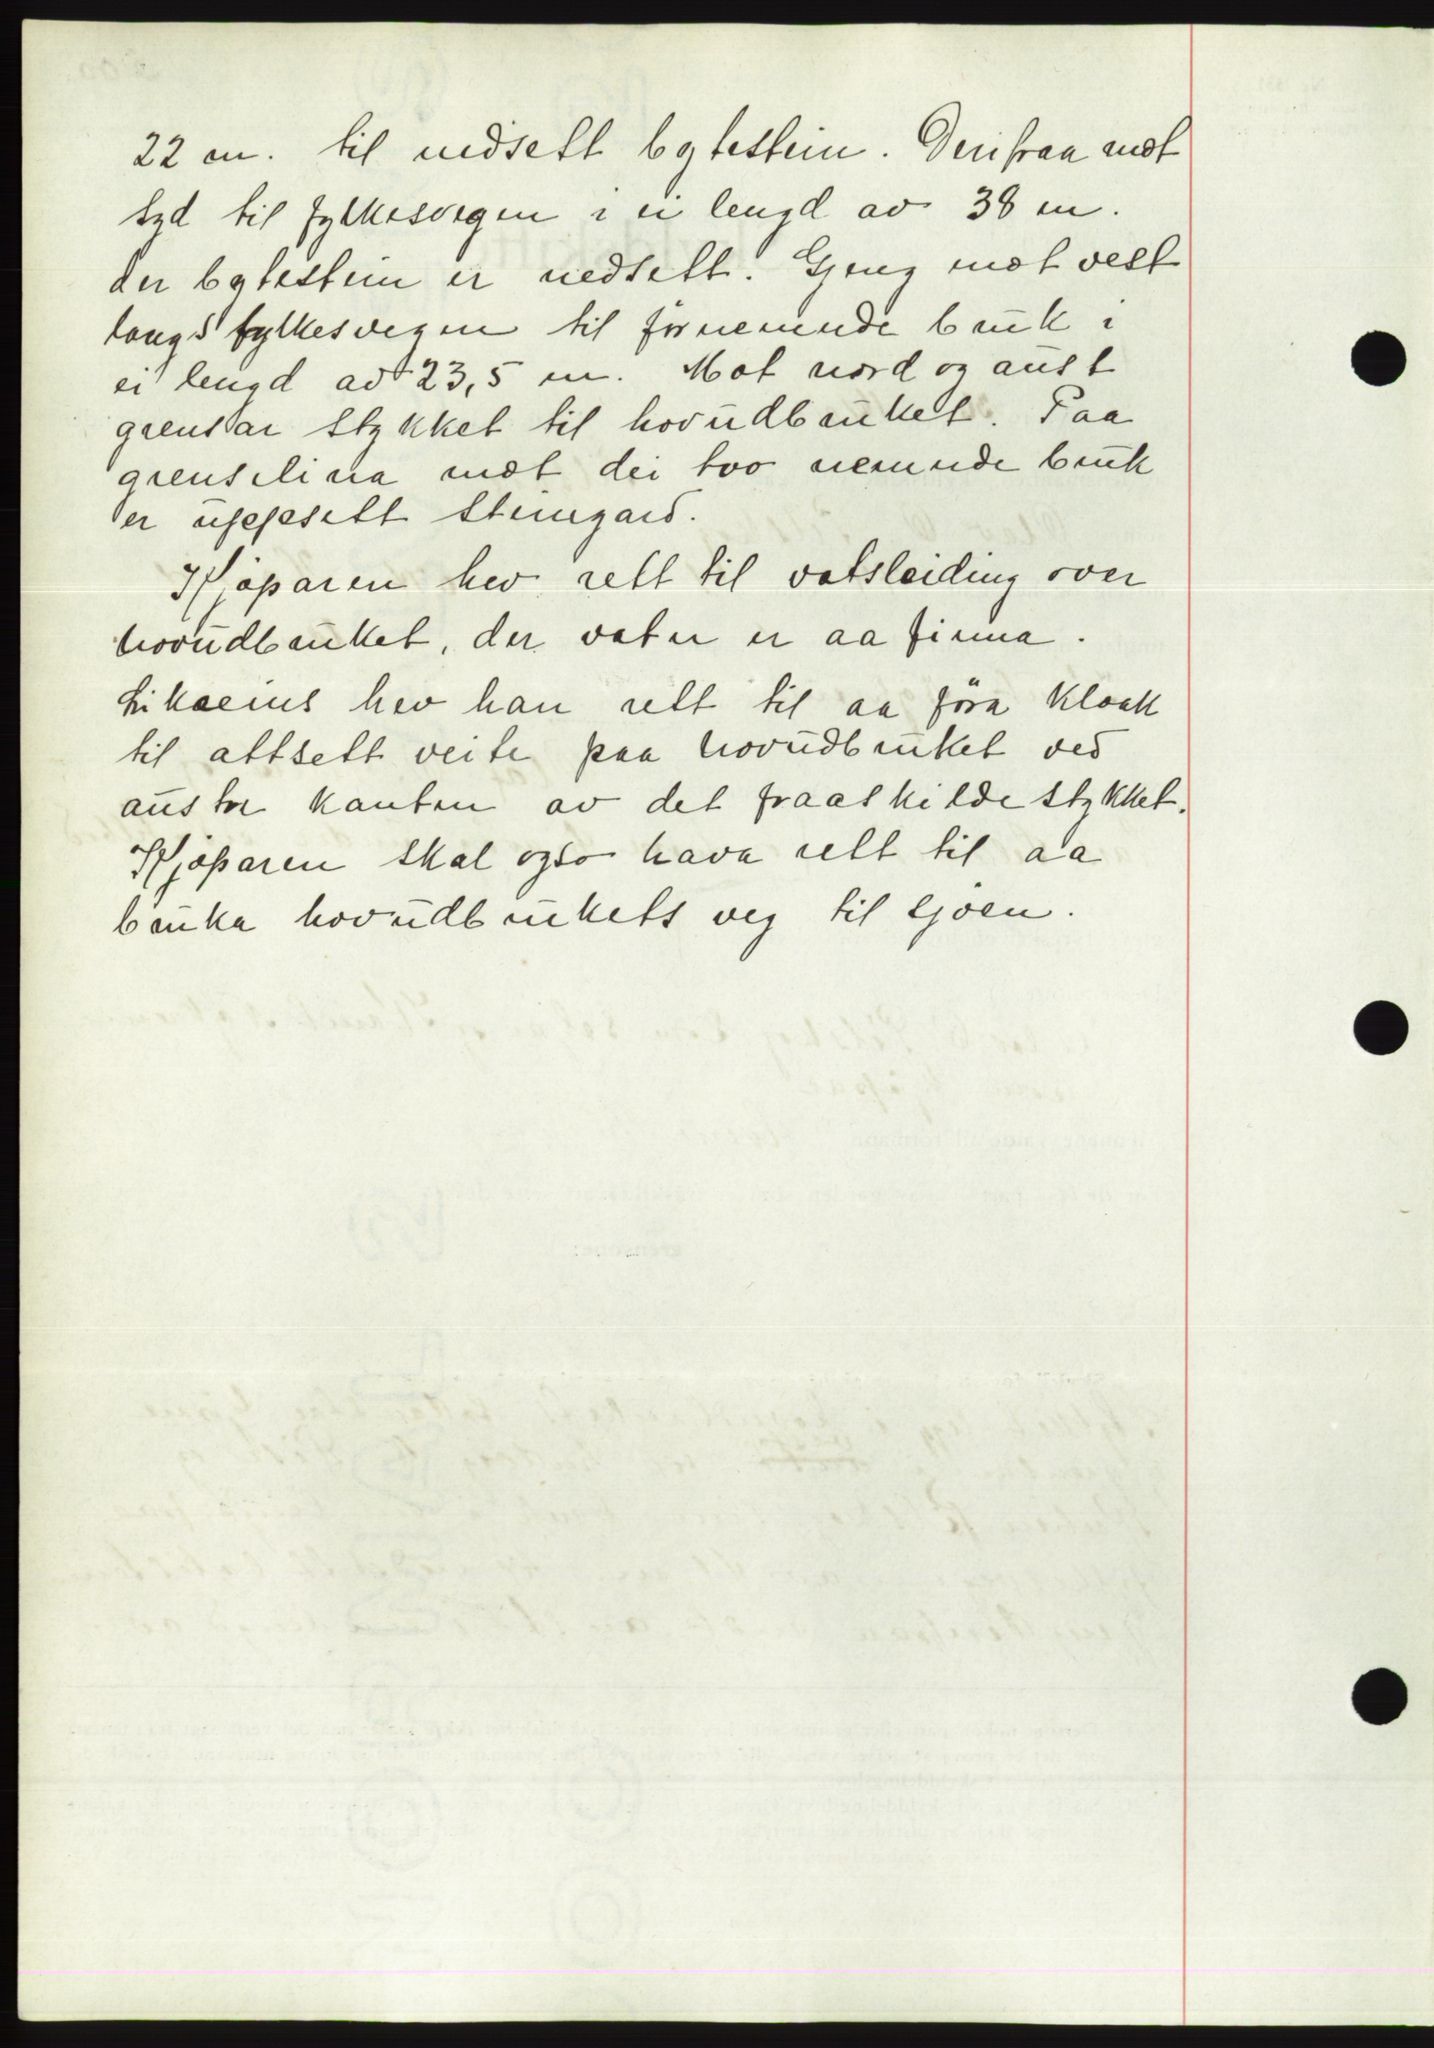 22 m. til nedsett bytestein. Derifraa mot
syd til fylkesvegen i ei lengd av 38 m.
der bytestein er nedsett. Gjeng mot vest
langs fylkesvegen til förnemnde bruk i
ei lengd av 23,5 m. Mot nord og aust
grensar stykket til hovudbruket. Paa
grenselina mot dei tvo nemnde bruk
er uppsett steingard.
Kjöparen hev rett til vatsleiding over
hovudbruket, der vatn er aa finna.
Likaeins hev han rett til aa föra kloak
til attsett veite paa hovudbruket ved
austre kanten av det fraaskilde stykket.
Kjöparen skal ogso hava rett til aa
bruka hovudbrukets veg til sjöen.